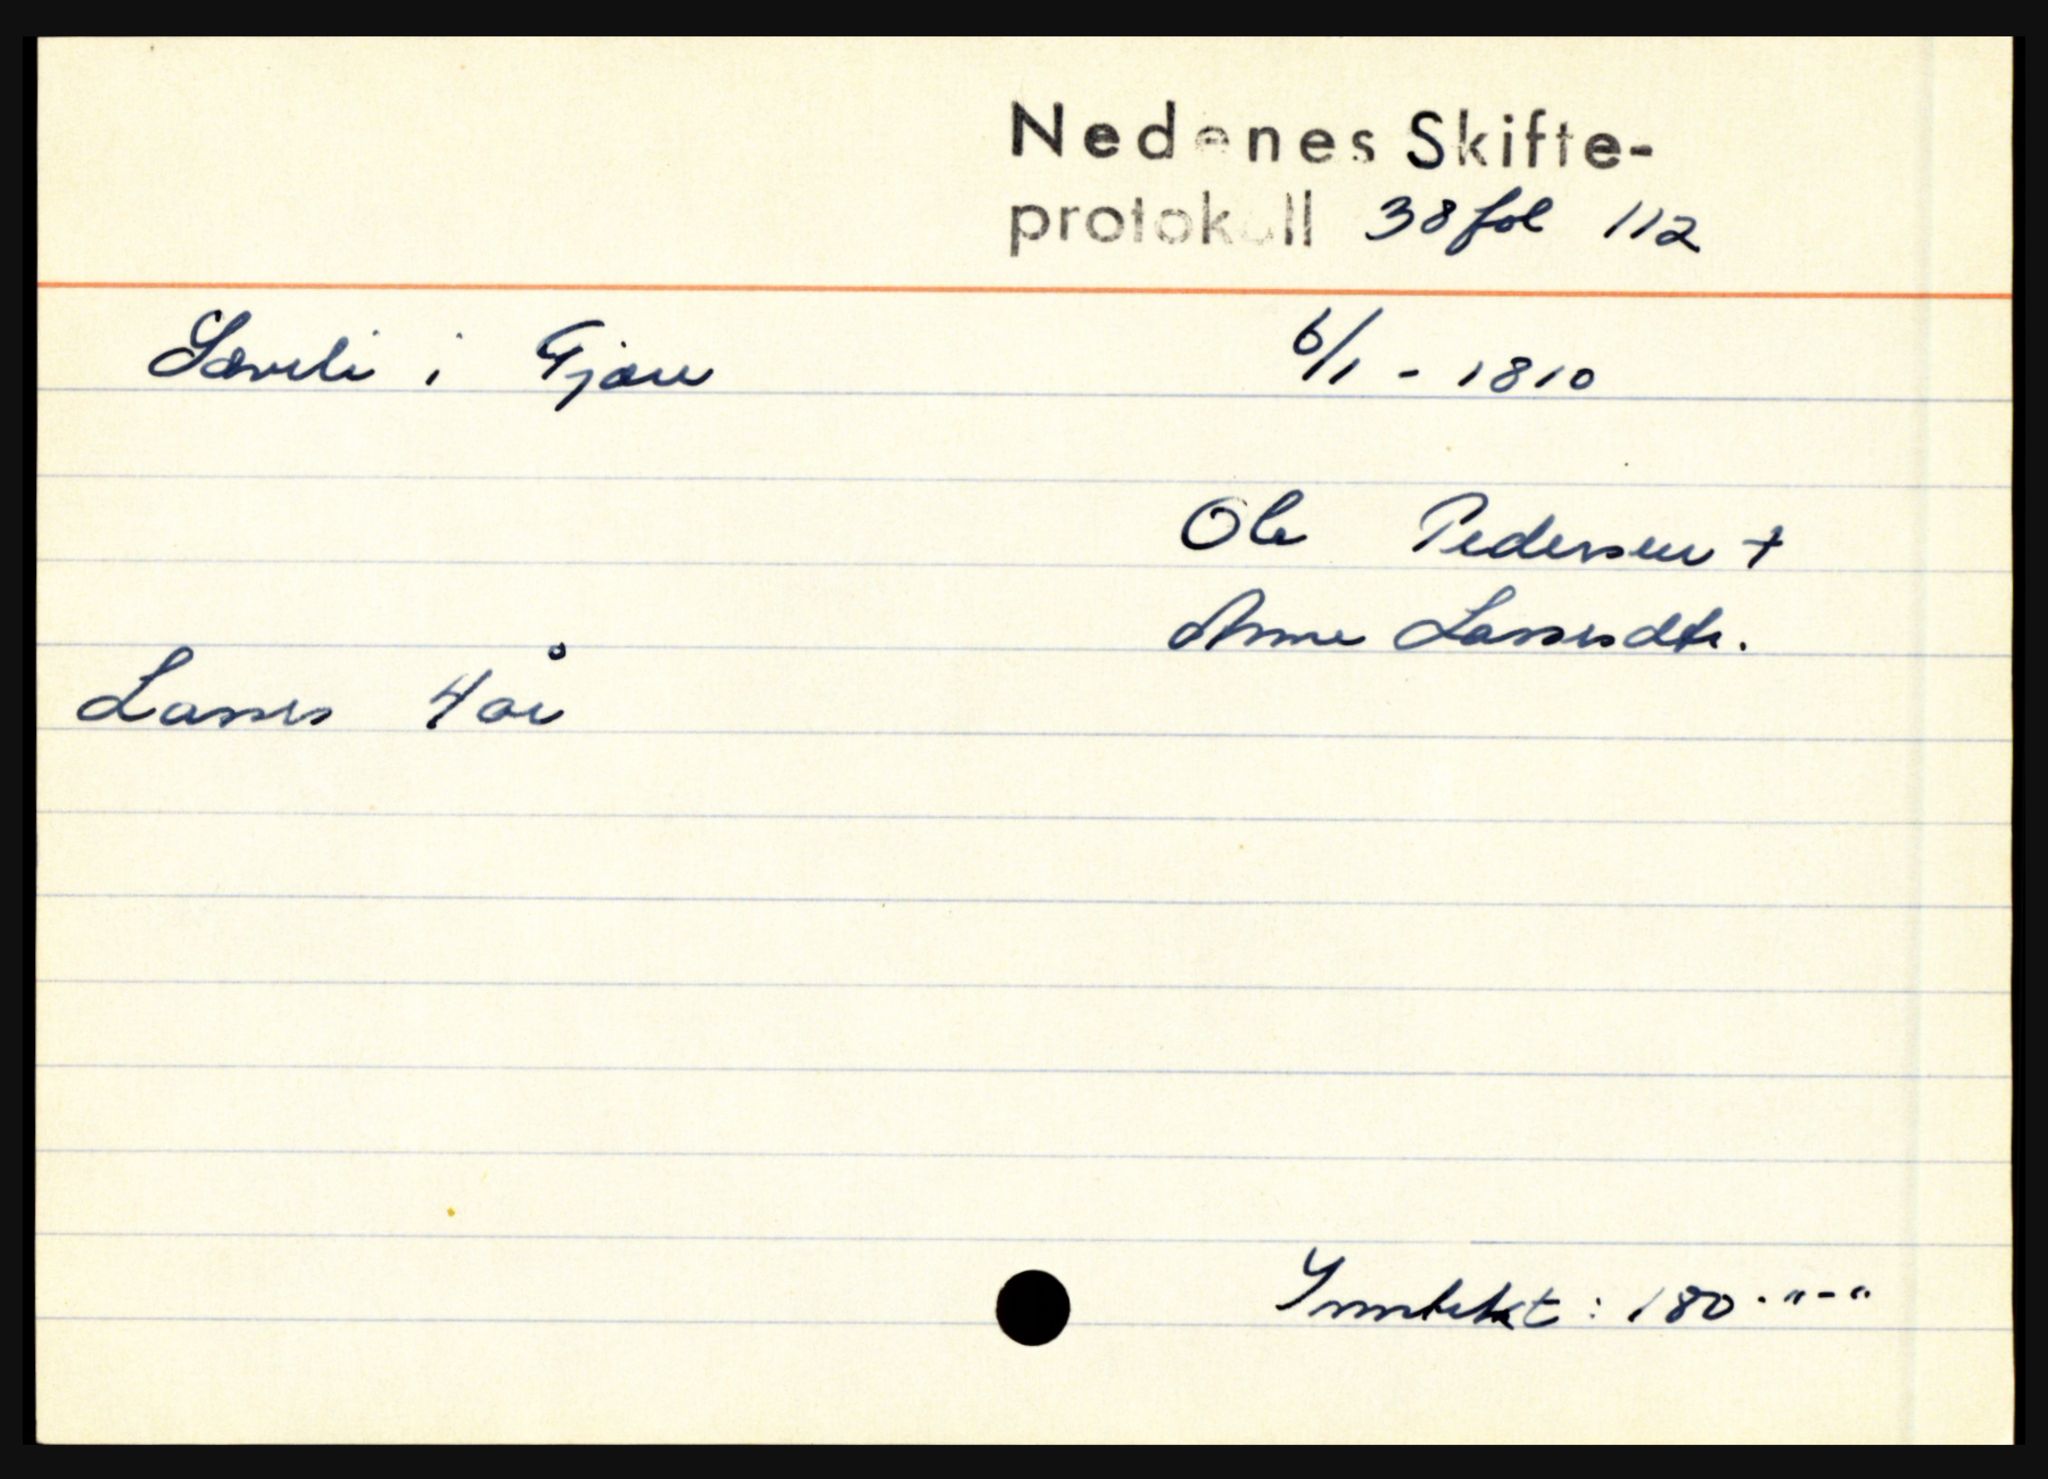 Nedenes Skifte-
protokoll 38 fol 112
Sæveli i Fjære 6/1 - 1810
Ole Pedersen +
Anne Lassesdtr.
Lasses 4 år
Inntekt : 180 · " - "